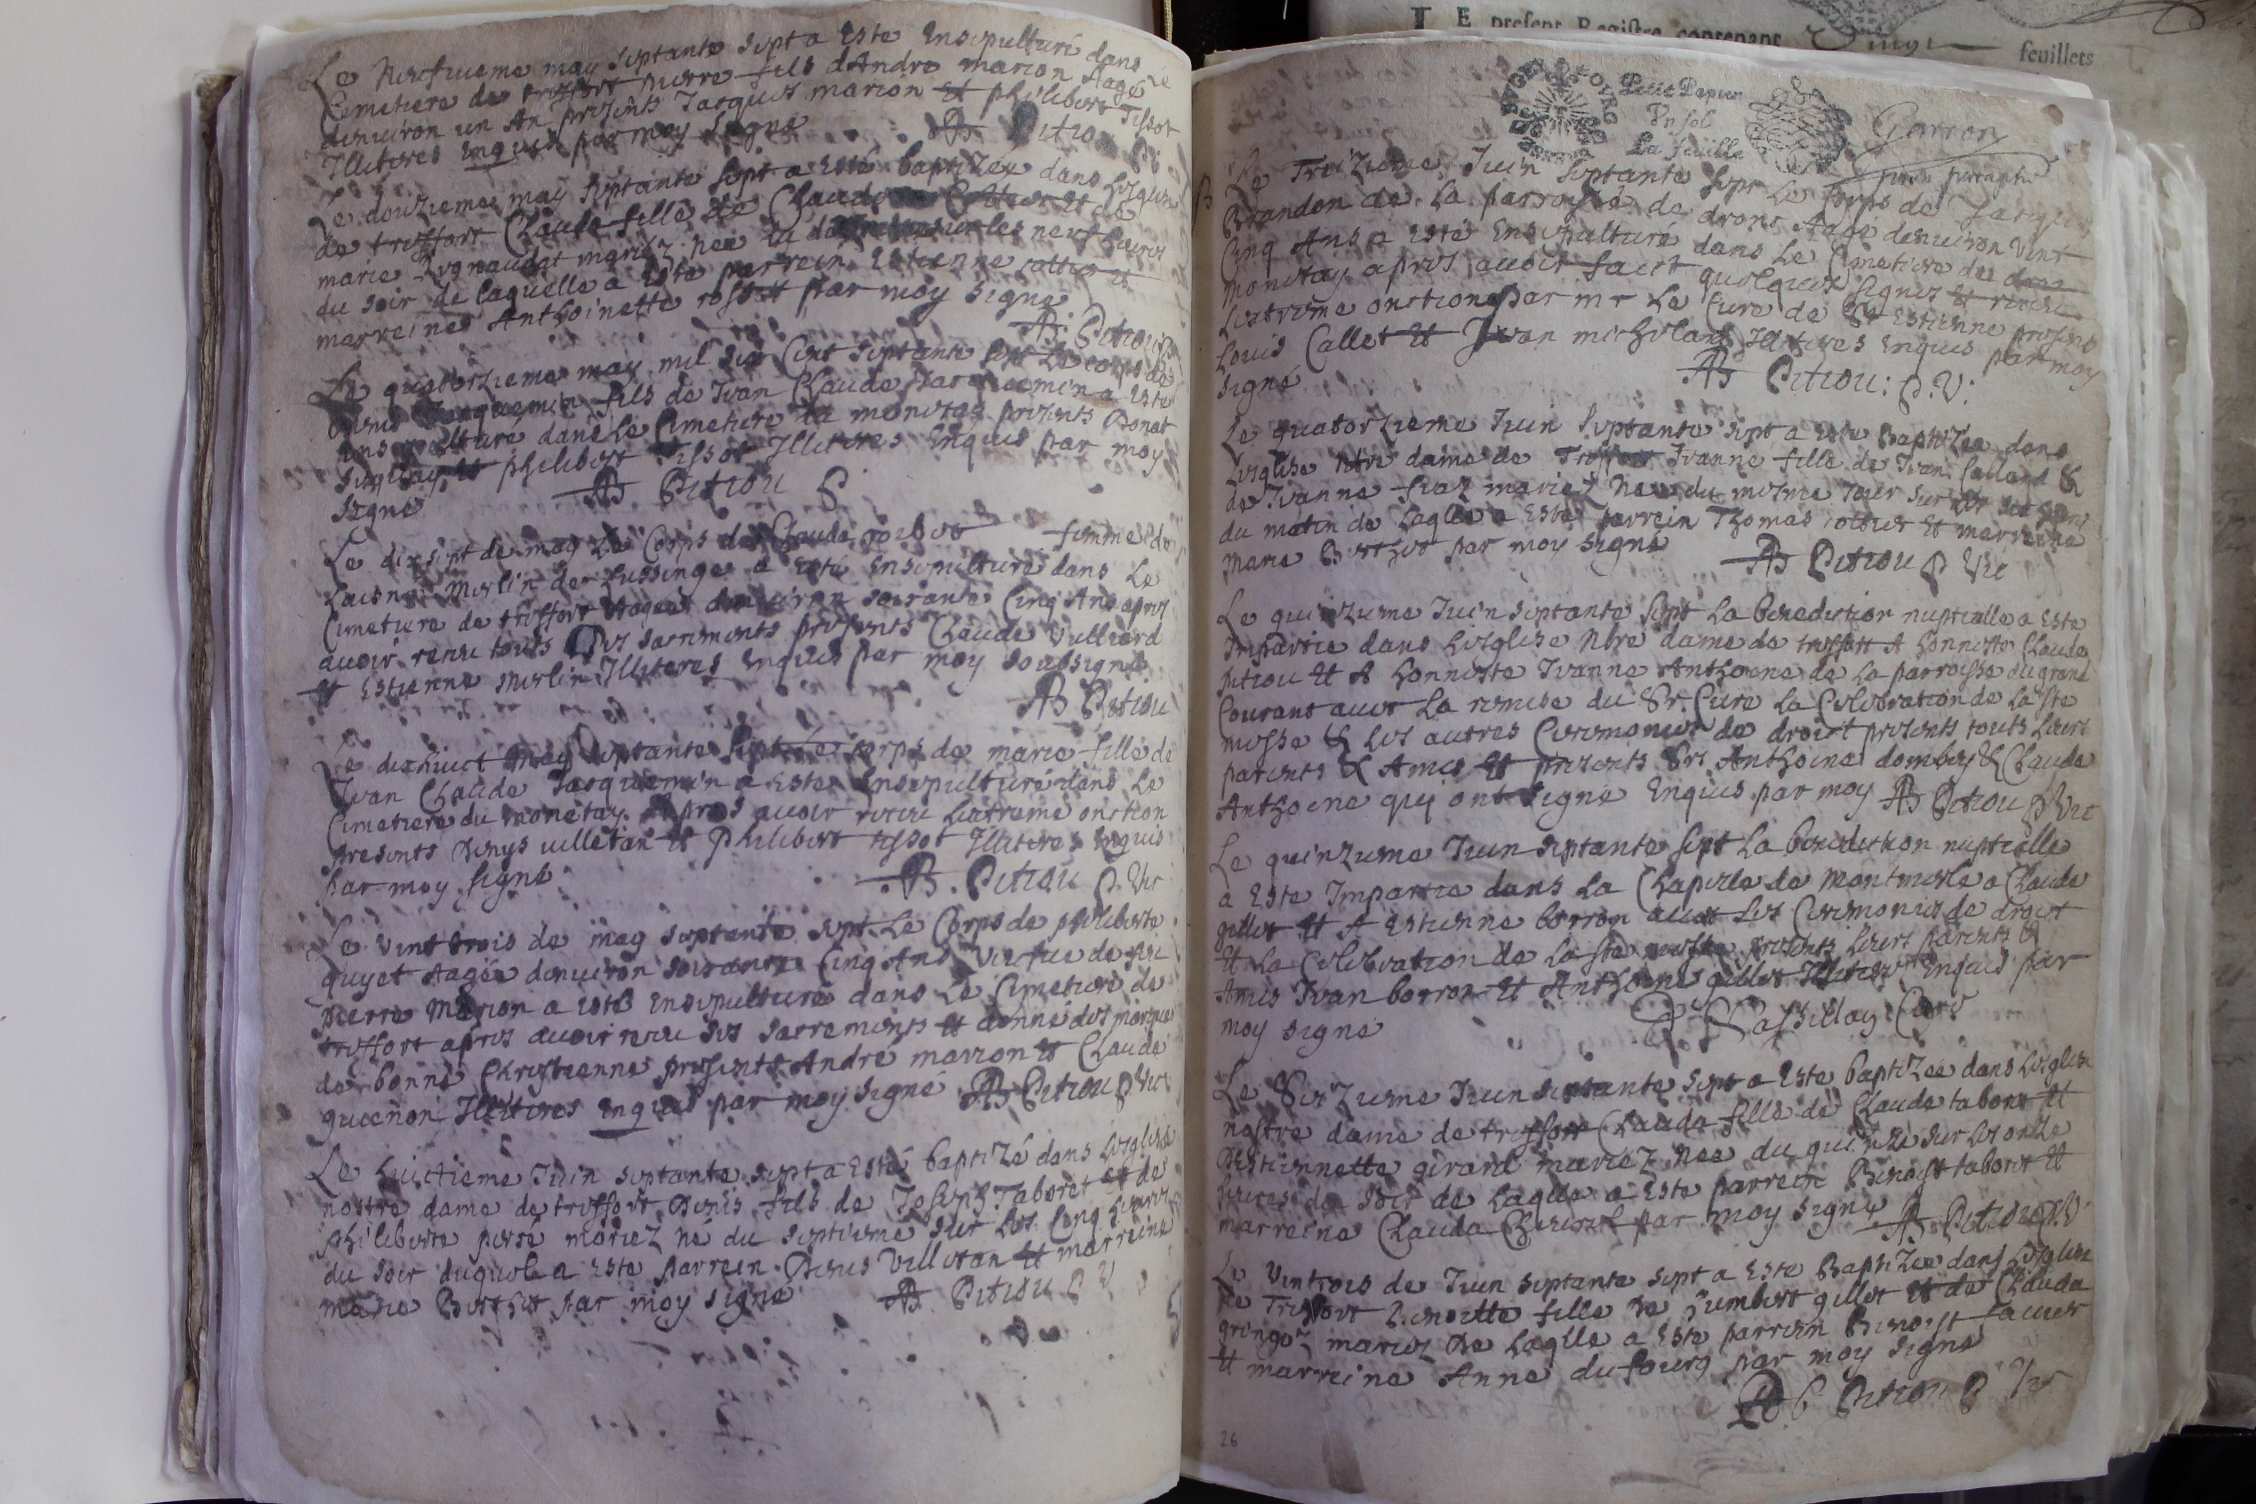 Le Neufvieme may septante sept a Este Ensepulturé dans Le
Cimetiere de treffort pierre fils dAndre marion Aagé
denuiron un An presents Jacques marion et philibert Tissot
Illiteres Enquis par moy signé AB Petiou
Le douzieme may septante sept a Esté baptizée dans Lesglise
de treffort Claude fille de Claude et de
marie mariez nee sur les neuf heures
du soir de laquelle a Este parrein Estienne cottier et
marreine Anthoinette par moy signe
AB Petiou
Le quatorzieme may mil six Cent septante sept Le corps de
Denis Jacquemin fils de Jean Claude Jacquemin a Este
ensepulturé dans Le Cimetiere du monetay presents Donat
et philibert Tissot Illiteres Enquis par moy
signé AB Petiou
Le dix sept de may Le Corps de Claude femme de
Merlin de Lussinge a Este Ensepulturé dans Le
Cimetiere de treffort Aagee denuiron soixante Cinq Ans apres
auoir receu touts les sacrements presents Claude Vulliard
et Estienne Merlin Illiteres Enquis par moy soubsigné
AB Petiou
Le dixhuict May septante sept Le corps de marie fille de
Jean Claude Jacquemin a Este Ensepulturé dans Le
Cimetiere du monetay Apres auoir receu Lextreme onction
presents Denys uilletan et Philibert tissot Illiteres Enquis
par moy signé AB. Petiou p. Vic
Le vint trois de may septante sept Le Corps de philiberte
guyet Aagée denuiron soixante Cinq Ans Vefue de feu
pierre Marion a esté Ensepulturé dans Le Cimetiere de
treffort apres auoir receu ses sacrements et donné des marques
de bonne Chrestienne presents André marion et Claude
Illiteres enquis par moy signé AB Petiou p Vic
Le huictieme Juin septante sept a Esté baptizé dans Lesglise
nostre dame de treffort Denis fils de Joseph Taboret et de
philiberte mariez né du septieme sur Les Cinq heures
du soir duquel a Este parrein Denis Villetan et marreine
marie Berthet par moy signe AB Petiou P V
LE present Registre contenant Vingt feuillets
BVGEY ET
Petit Papier
Vn sol
La feuille
Garron
Le Treizieme Juin septante sept Le Corps de Jacques
Brandon de La parroisse de drom Aagé denuiron Vint
Cinq Ans a Esté Ensepulturé dans Le Cimetiere de
monetay apres auoir faict quelques signes et receu
Lextreme onction par mr Le Cure de St Estienne presens
Louis Callet et Jean Illiteres Enquis par moy
signé AB Petiou: P. V:
Le quatorzieme Juin septante sept a Este Baptizée dans
Lesglise Ntre dame de Treffort Jeanne fille de Jean &
de Jeanne mariez nee du mesme Jour sur Les sept heures
du matin de Laqlle a Este parrein Thomas cottier et marreine
marie Berthet par moy signé AB Petiou P Vic
Le quinzieme Juin septante sept La benediction nuptialle a Este
Impartie dans Lesglise Ntre dame de treffort A honneste Claude
petiou et A honneste Jeanne Anthoine de La parroisse du grand
Courant auec La remise du Sr. Cure La Celebration de La Ste
messe & Les autres Ceremonies de droict presents touts Leurs
parents & Amis et presents Srs Anthoine dombey & Claude
Anthoine qui ont signe Enquis par moy AB Petiou P Vic
Le quinzieme Juin septante sept La benediction nuptialle
a Este Impartie dans La Chapelle de Montmerle a Claude
gillet et A Estienne borron auec Les Ceremonies de droict
et La Celebration de La ste messe presents Leurs parents &
Amis Jean borron et Anthoine gillet Illiteres Enquis par
moy signe Curé
Le Seizieme Juin septante sept a Este baptizée dans Lesglise
nostre dame de treffort Claude fille de Claude taboret et
destiennette girard mariez nee du quinze sur Les onze
heures du soir de Laqlle a Este parrein Benoist taboret et
marreine Claude par moy signe AB Petiou P. V.
Le Vintrois de Juin septante sept a Este Baptizée dans Lesglise
de Treffort Benoitte fille de humbert gillet et de Claude
mariez de Laqlle a Este parrein Benoist
et marreine Anne dufourg par moy signe
AB Petiou P Vic
26